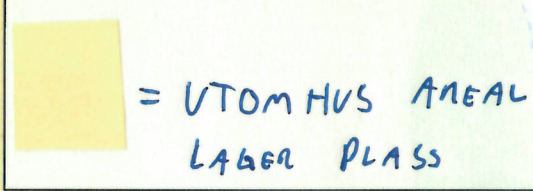 = UTOMHUS AREAL
LAGER PLASS